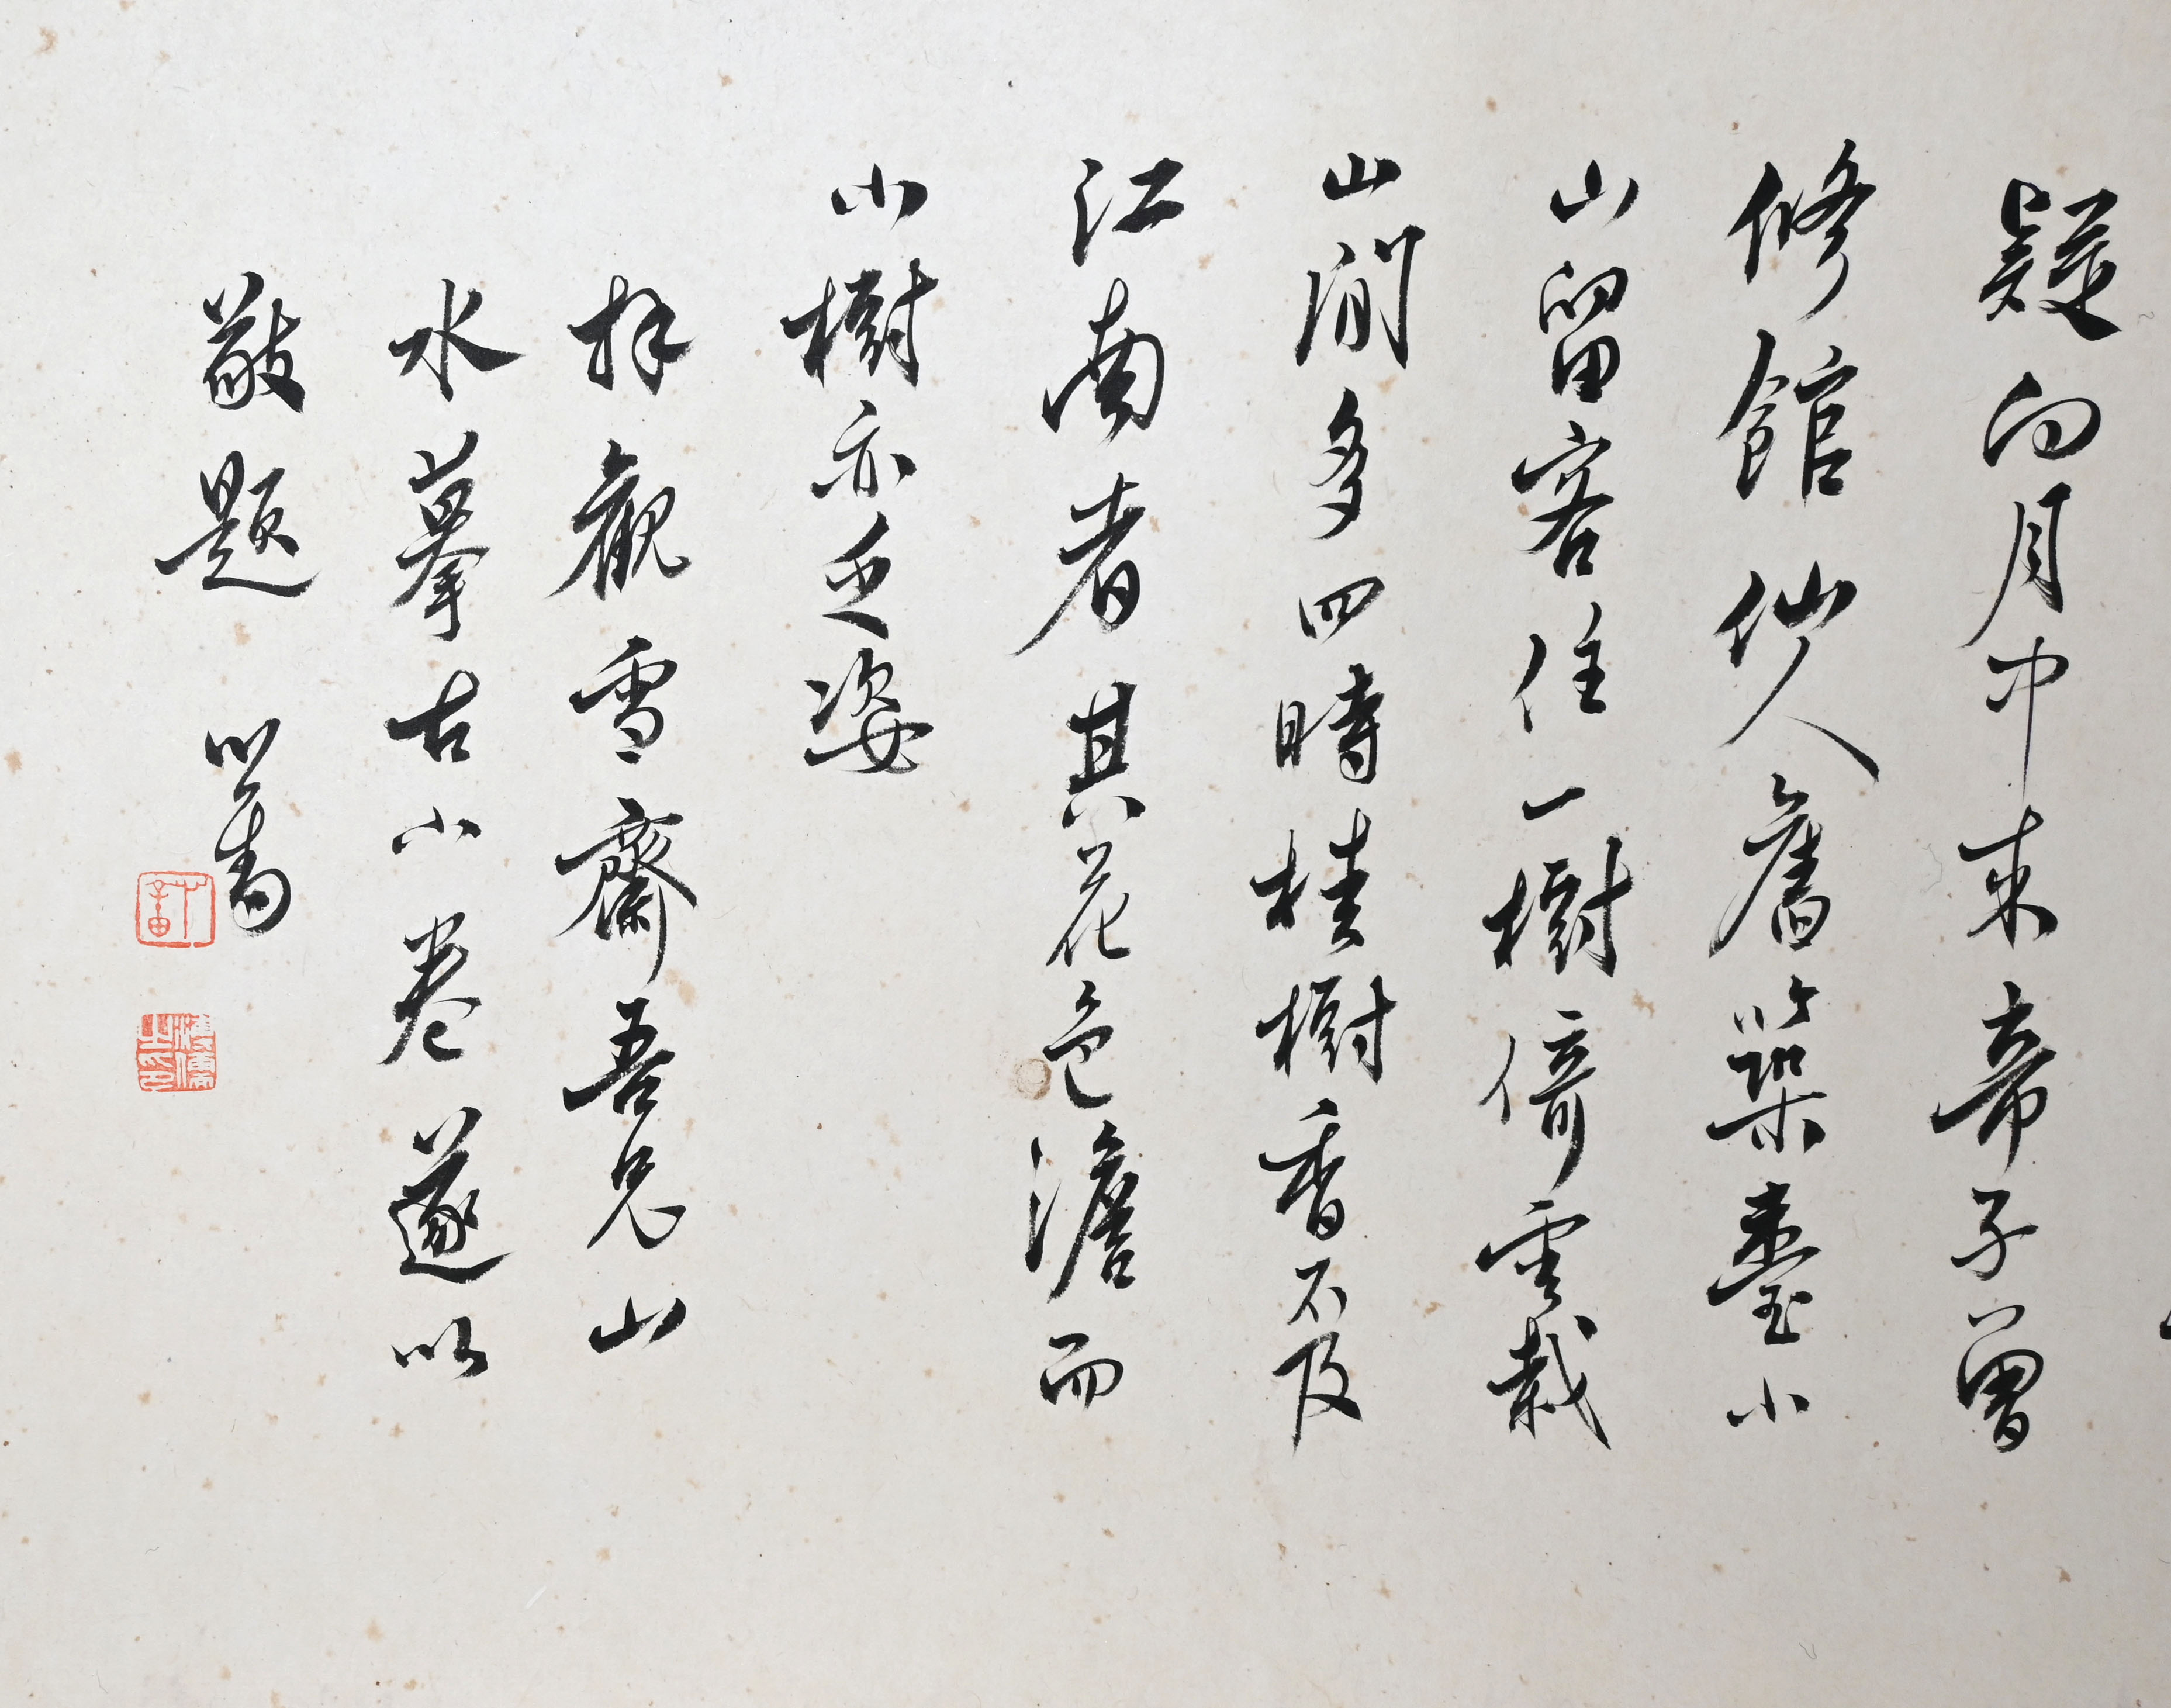 疑向月中來帝子曾
修館仙人舊築臺小
山留客住一樹倚雲栽
山間多四時桂樹香不及
江南者其花色澹而
小樹亦乏姿
拜觀雪齋吾兄山
水摹古小卷遂以
敬題 心畬
溥儒之印